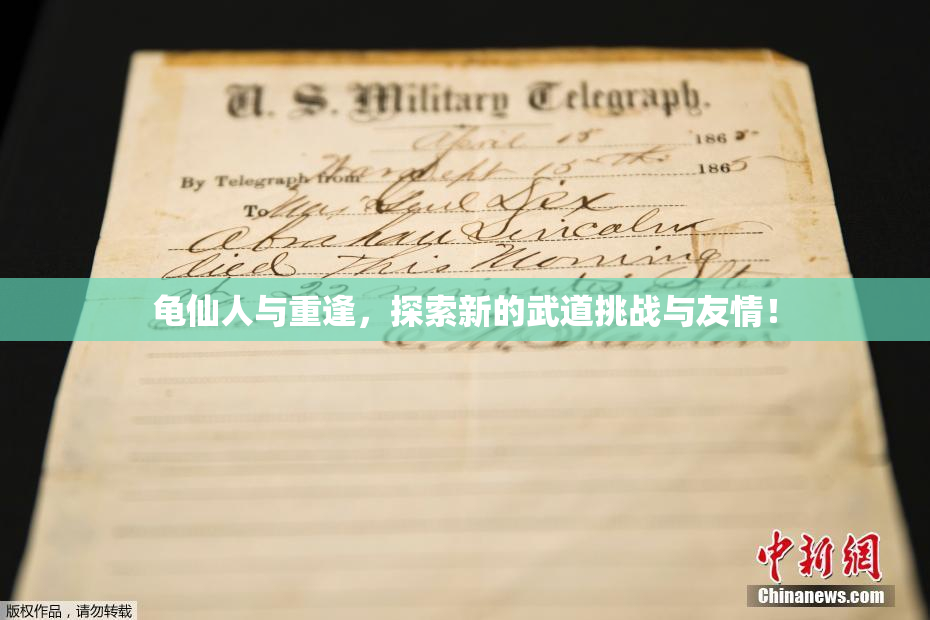 U. S. Military Telegraph.
April 15 1865
By Telegraph from War Dept 15th 1865
To Maj Genl Dix
Abraham Lincoln
died This Morning
at 22 minutes after
龟仙人与重逢，探索新的武道挑战与友情！
E. M. Stanton
中新网
Chinanews.com
版权作品，请勿转载